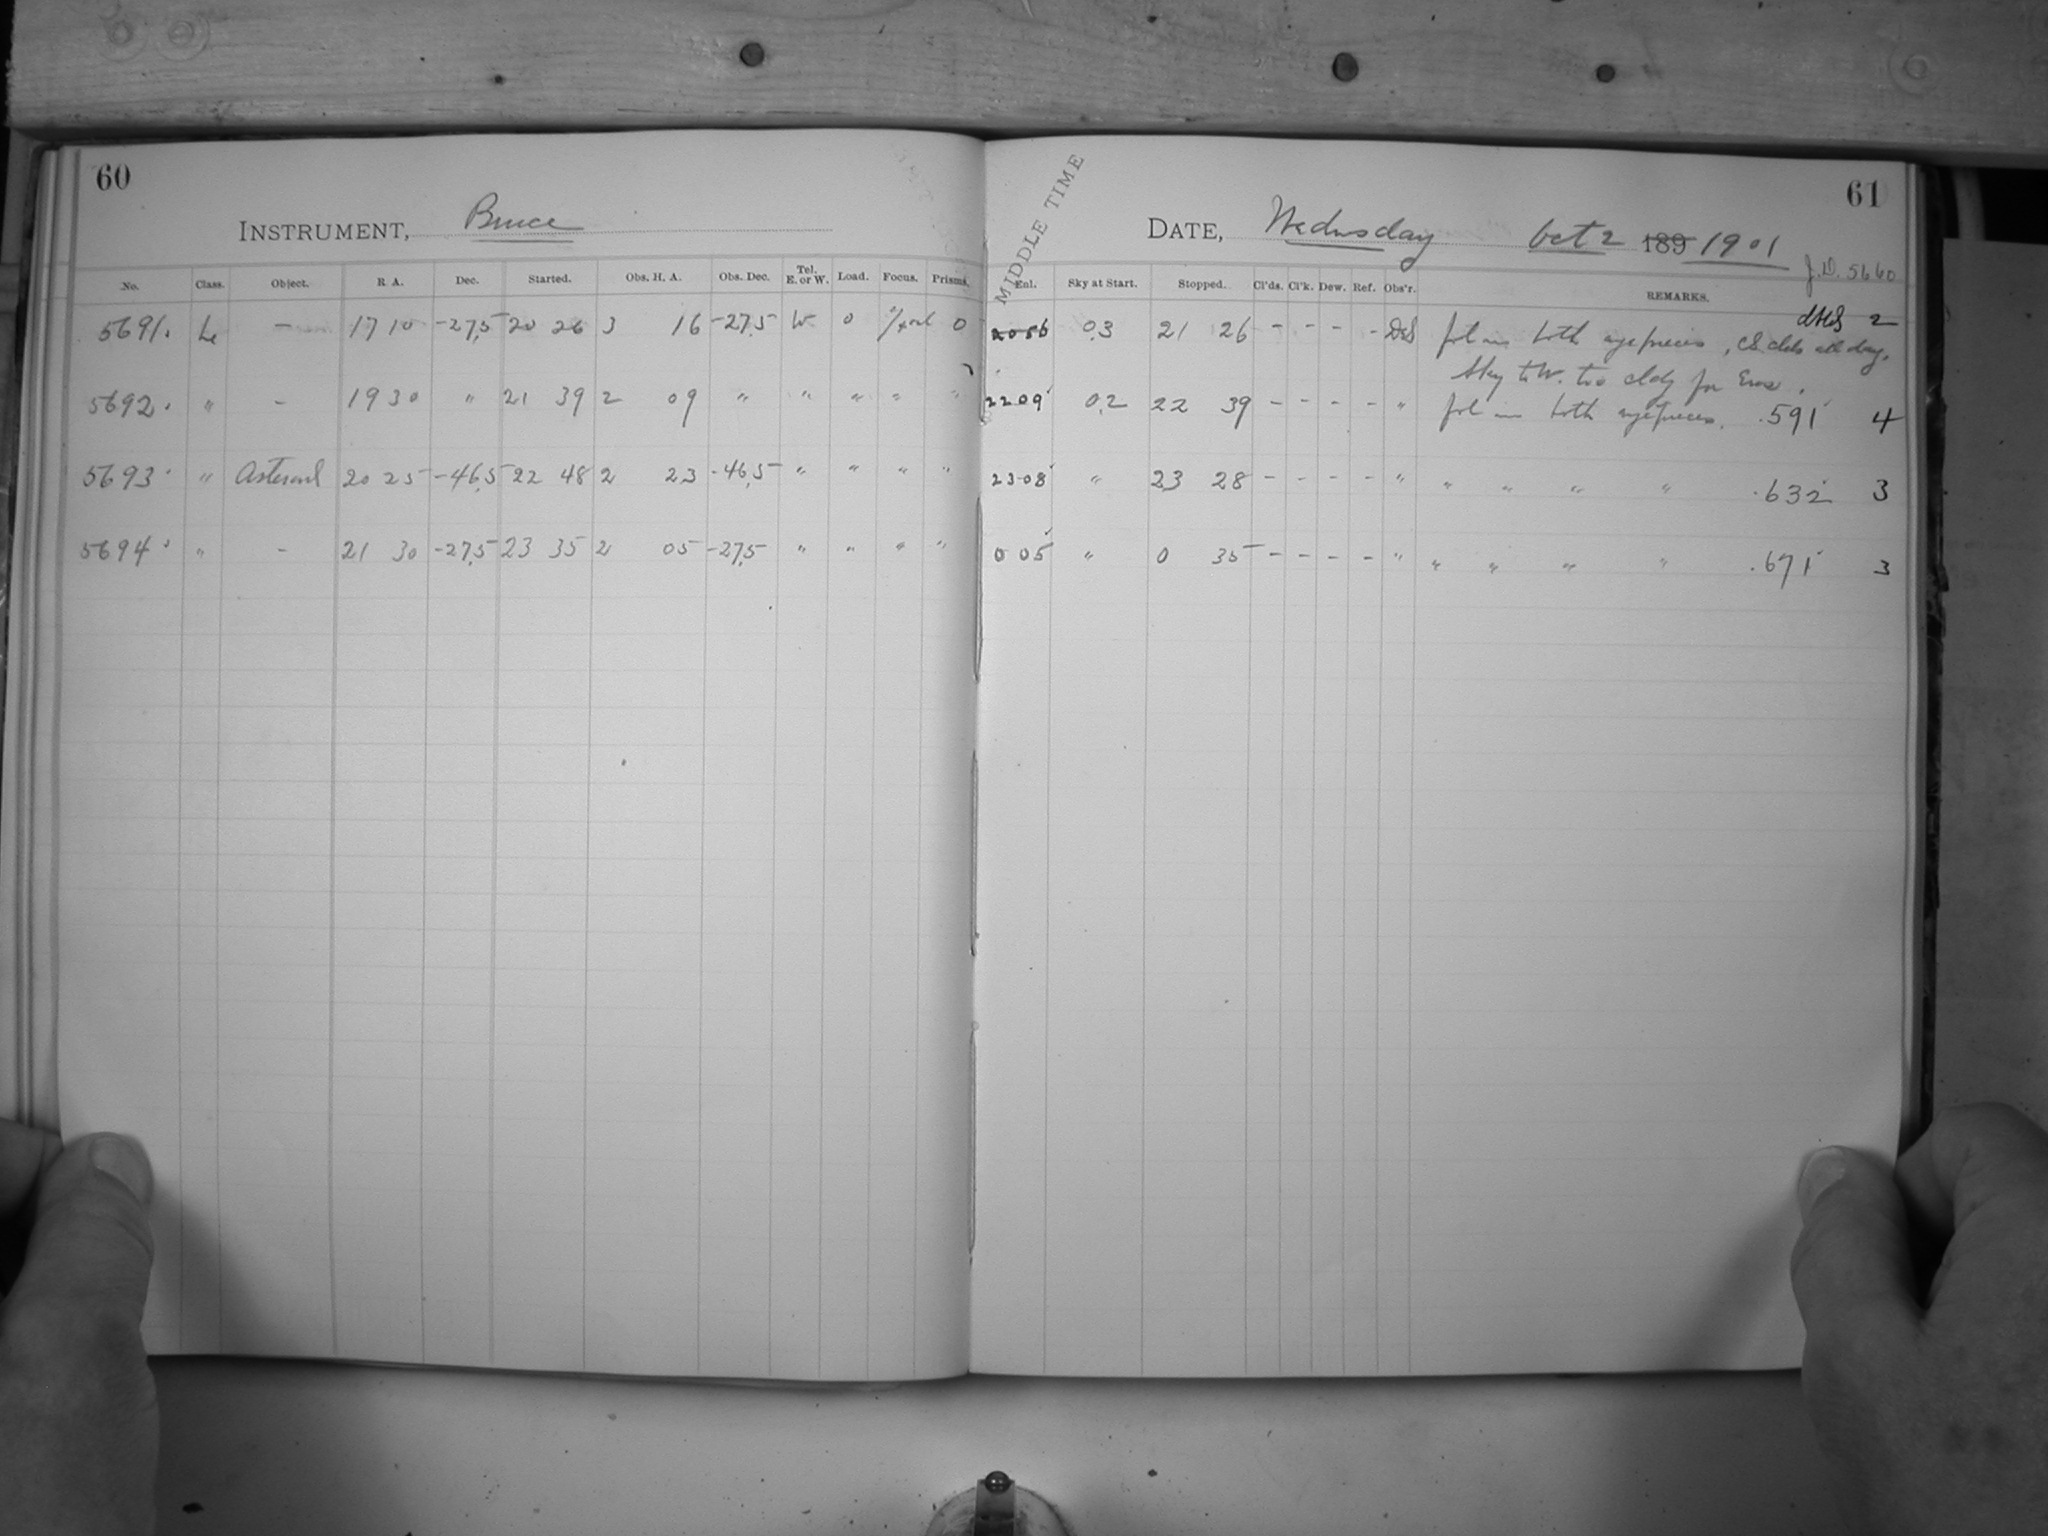 60
INSTRUMENT, Bruce
No. Class. Object. R. A. Dec. Started. Obs. H. A. Obs. Dec. Tel. E. or W. Load. Focus. Prisms.
5691. L - 17 10 -27.5 20 26 3 16 -27.5 W 0 0
5692. " - 19 30 " 21 39 2 09 " " " " "
5693 " Asteroid 20 25 -46.5 22 48 2 23 -46.5 " " " "
5694 " - 21 30 -27.5 23 35 2 05 -27.5 " " " "
61
MIDDLE TIME
DATE, Wednsday Oct 2 189 1901
J.D. 5660
Enl. Sky at Start. Stopped. Cl'ds. Cl'k. Dew. Ref. Obs'r. REMARKS.
20 56 0.3 21 26 - - - - fol in both eyepieces, clds all day. 2
Sky to W. too cldy for Eros.
22 09 0.2 22 39 - - - - " fol in both eyepieces. .591 4
23 08 " 23 28 - - - - " " " " " .632 3
0 05 " 0 35 - - - - " " " " " .671 3